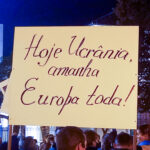 Hoje Ucrânia,
amanha
Europa toda!